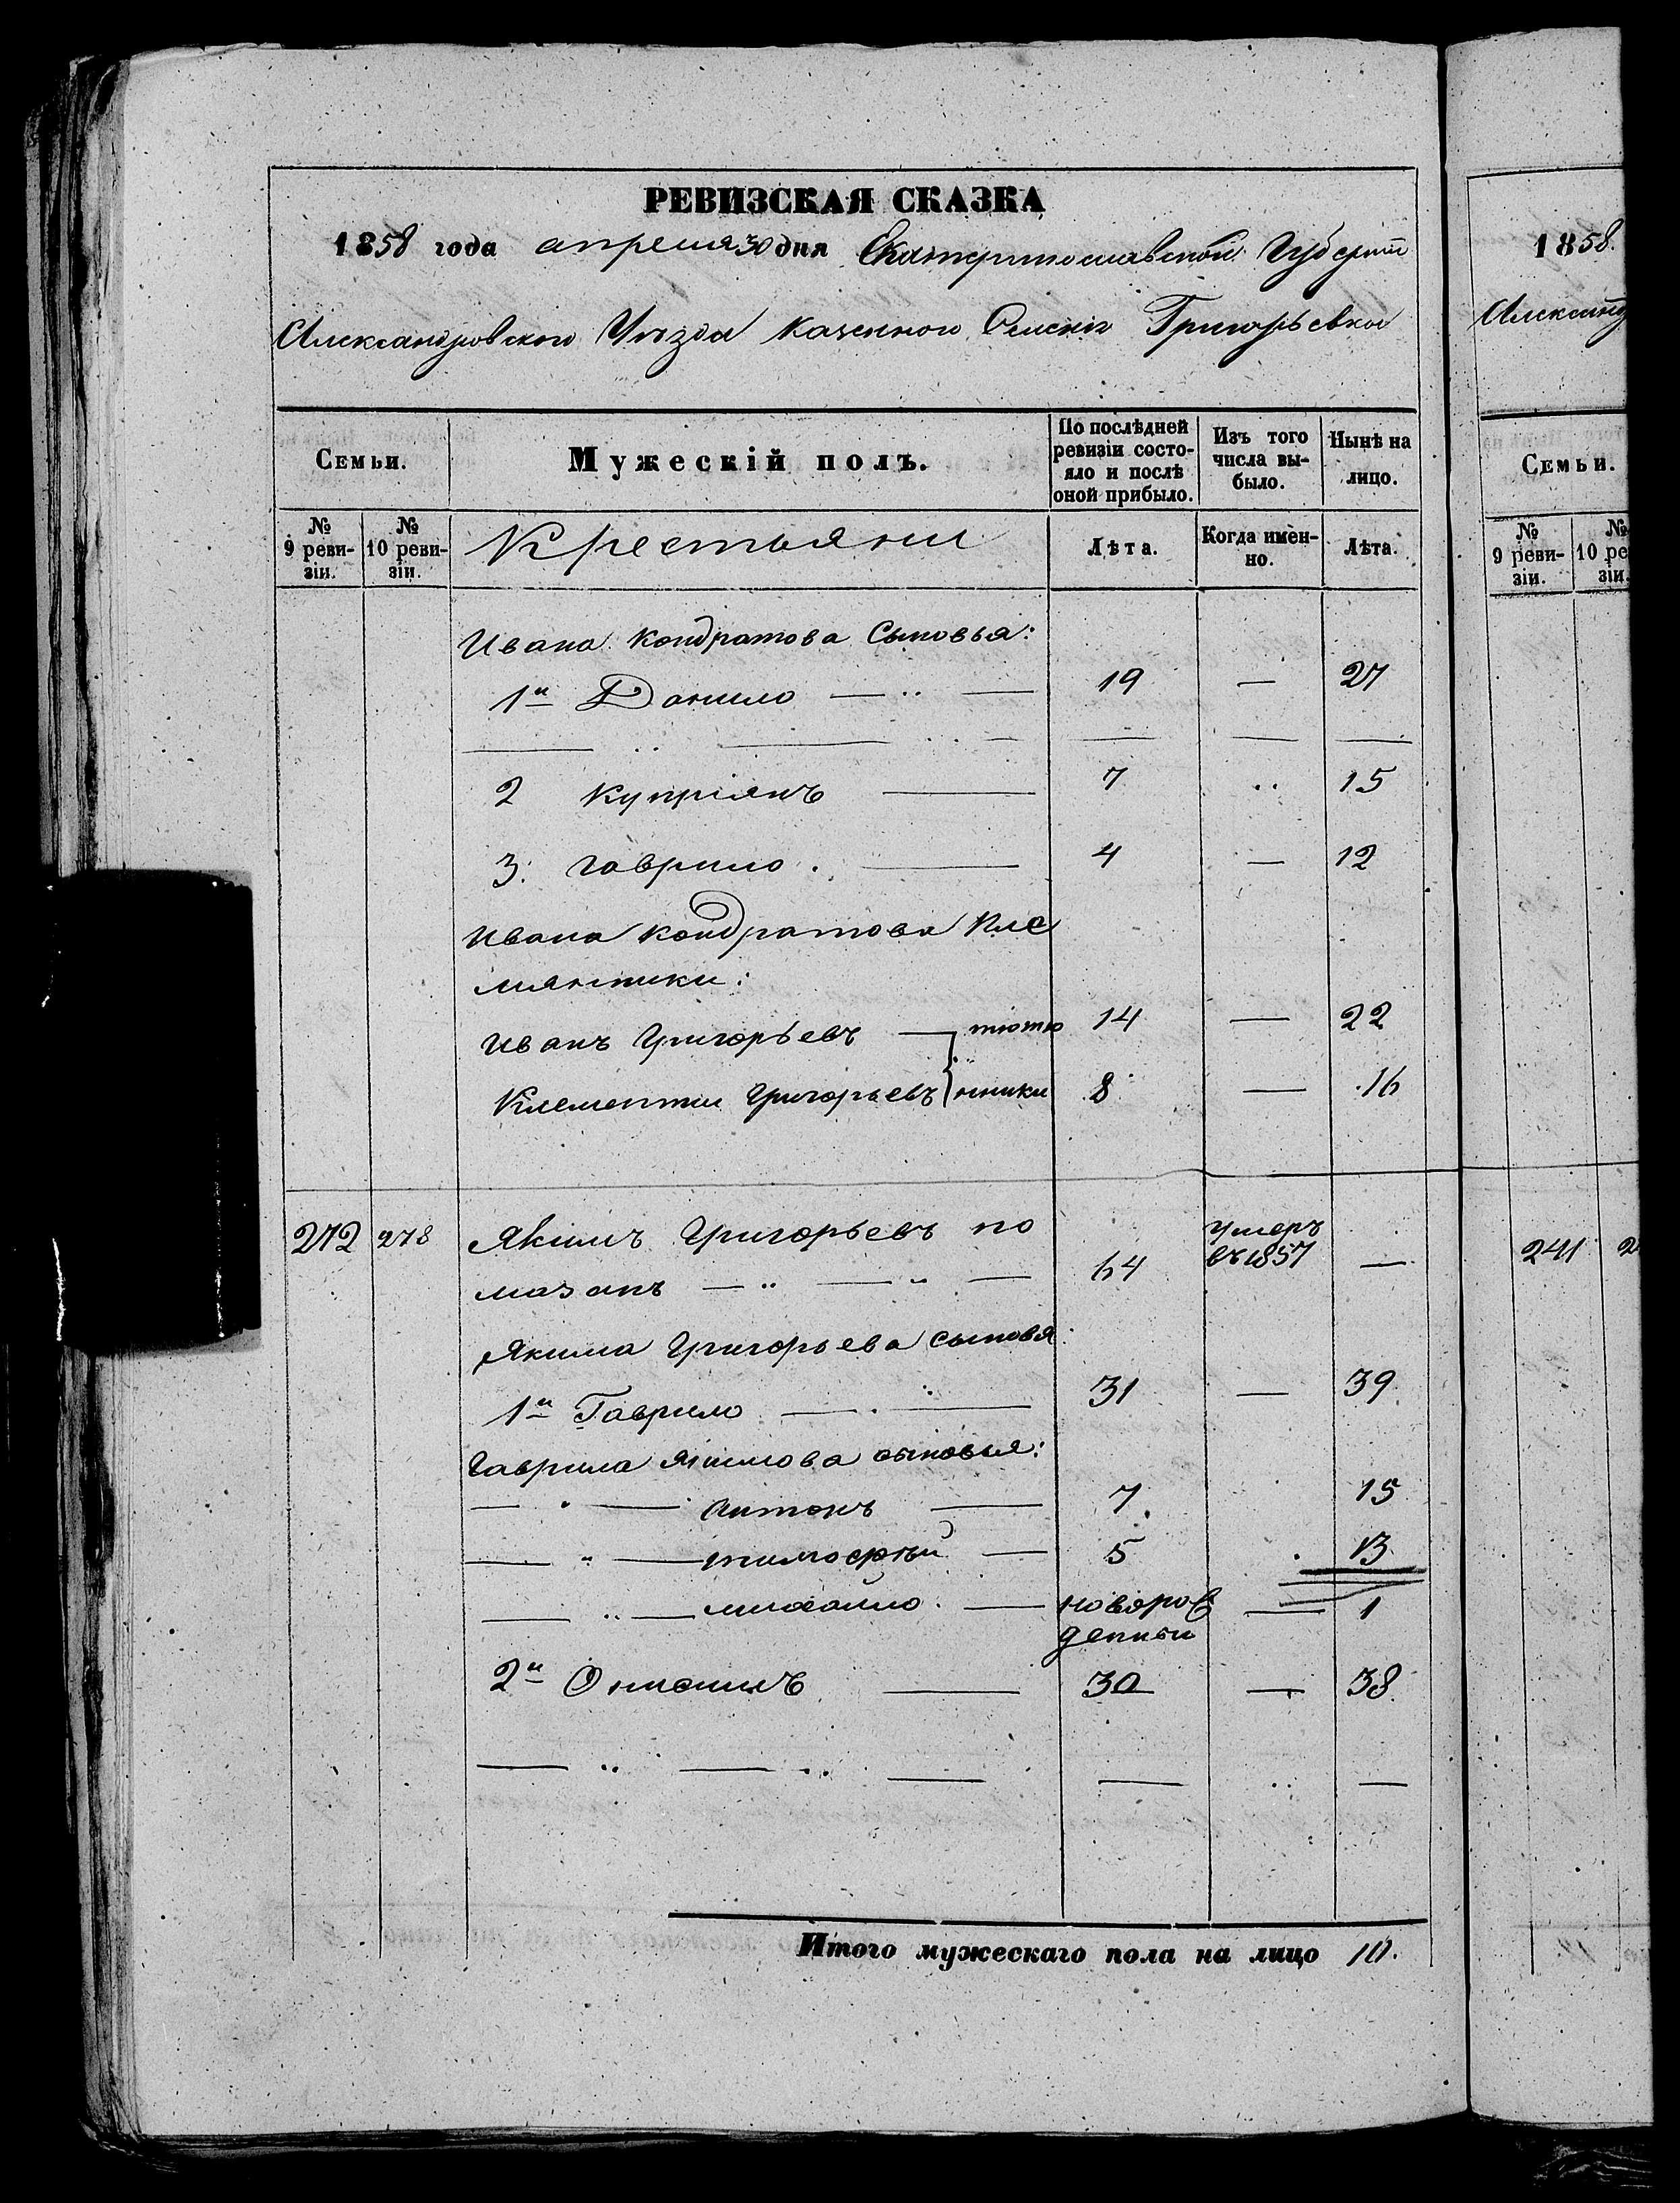 РЕВИЗСКАЯ СКАЗКА
1858 года апреля 30 дня Екатеринославской Губерніи
Александровского Уѣзда Казенного Селенія Григорьевки
Семьи.
Мужескій полъ.
По послѣдней ревизіи состояло и послѣ оной прибыло.
Изъ того числа выбыло.
Нынѣ на лицо.
№ 9 ревизіи.
№ 10 ревизіи.
Крестьяни
Лѣта.
Когда именно.
Лѣта.
Ивана Кондратова Сыновья:
1й Данило — 19 — 27
2 Купріянъ — 7 .. 15
3. Гаврило. — 4 — 12
Ивана Кондратова Пле
мянники:
Иванъ Григорьевъ — 14 — 22
Клементи Григорьевъ 8 — 16
272 278 Якимъ Григорьевъ по
мазанъ — 64 умеръ въ 1857 —
Якима Григорьева сыновя:
1й Гаврило — 31 — 39
Гаврила Якимова сыновья:
Антонъ — 7 15
тимофѣй — 5 13
михайло — новорож — 1
денный
2й Онисимъ — 30 — 38
Итого мужескаго пола на лицо 10.
1858.
Александ
Семьи.
№ 9 ревизіи.
№ 10 ре
зіи.
241 2